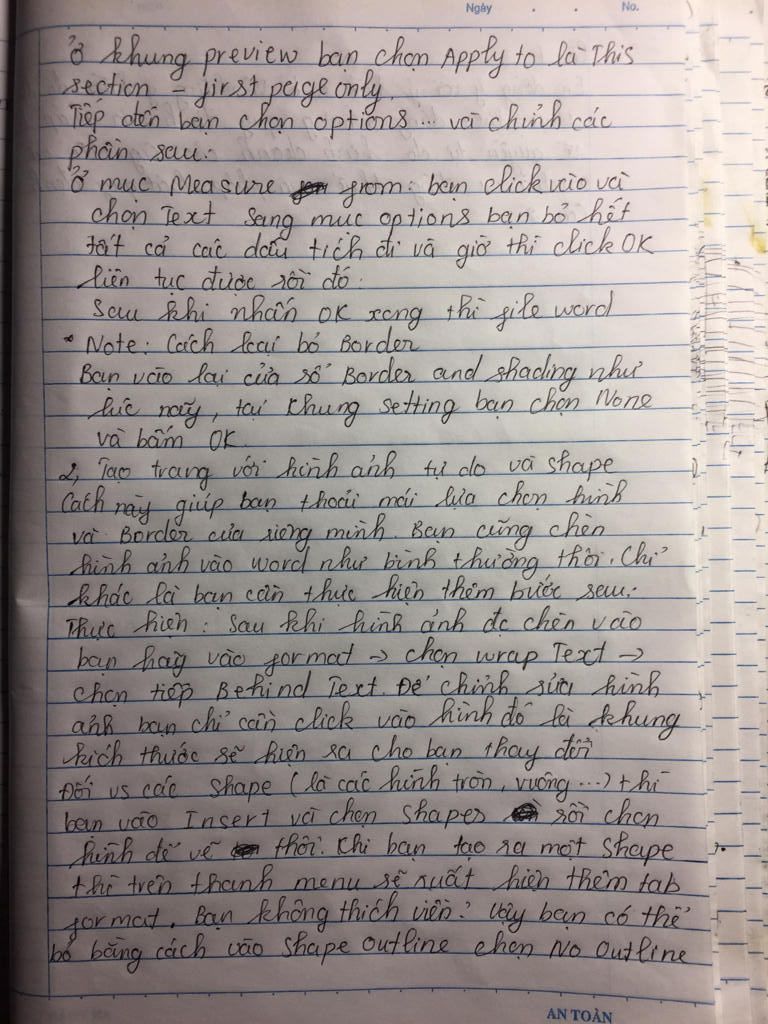 Ngày . . No.
Ở khung preview bạn chọn Apply to là This
section - first page only.
Tiếp đến bạn chọn options ... và chỉnh các
phần sau:
Ở mục Measure from: bạn click vào và
chọn Text sang mục options bạn bỏ hết
tất cả các dấu tích đi và giờ thì click OK
liên tục được rồi đó.
Sau khi nhấn OK xong thì file word
* Note: Cách loại bỏ Border
Bạn vào lại cửa sổ Border and shading như
lúc nãy, tại khung setting bạn chọn None
và bấm OK.
2, Tạo trang với hình ảnh tự do và shape
Cách này giúp bạn thoải mái lựa chọn hình
và Border của riêng mình. Bạn cũng chèn
hình ảnh vào word như bình thường thôi. Chỉ
khác là bạn cần thực hiện thêm bước sau:
Thực hiện: Sau khi hình ảnh đc chèn vào
bạn hãy vào format → chọn wrap Text →
chọn tiếp Behind Text. Để chỉnh sửa hình
ảnh bạn chỉ cần click vào hình đó là khung
kích thước sẽ hiện ra cho bạn thay đổi
Đối vs các shape (là các hình tròn, vuông ...) thì
bạn vào Insert và chọn shapes rồi chọn
hình để vẽ thôi. Khi bạn tạo ra một shape
thì trên thanh menu sẽ xuất hiện thêm tab
format. Bạn không thích viền? Vậy bạn có thể
bỏ bằng cách vào shape outline chọn No outline
AN TOÀN